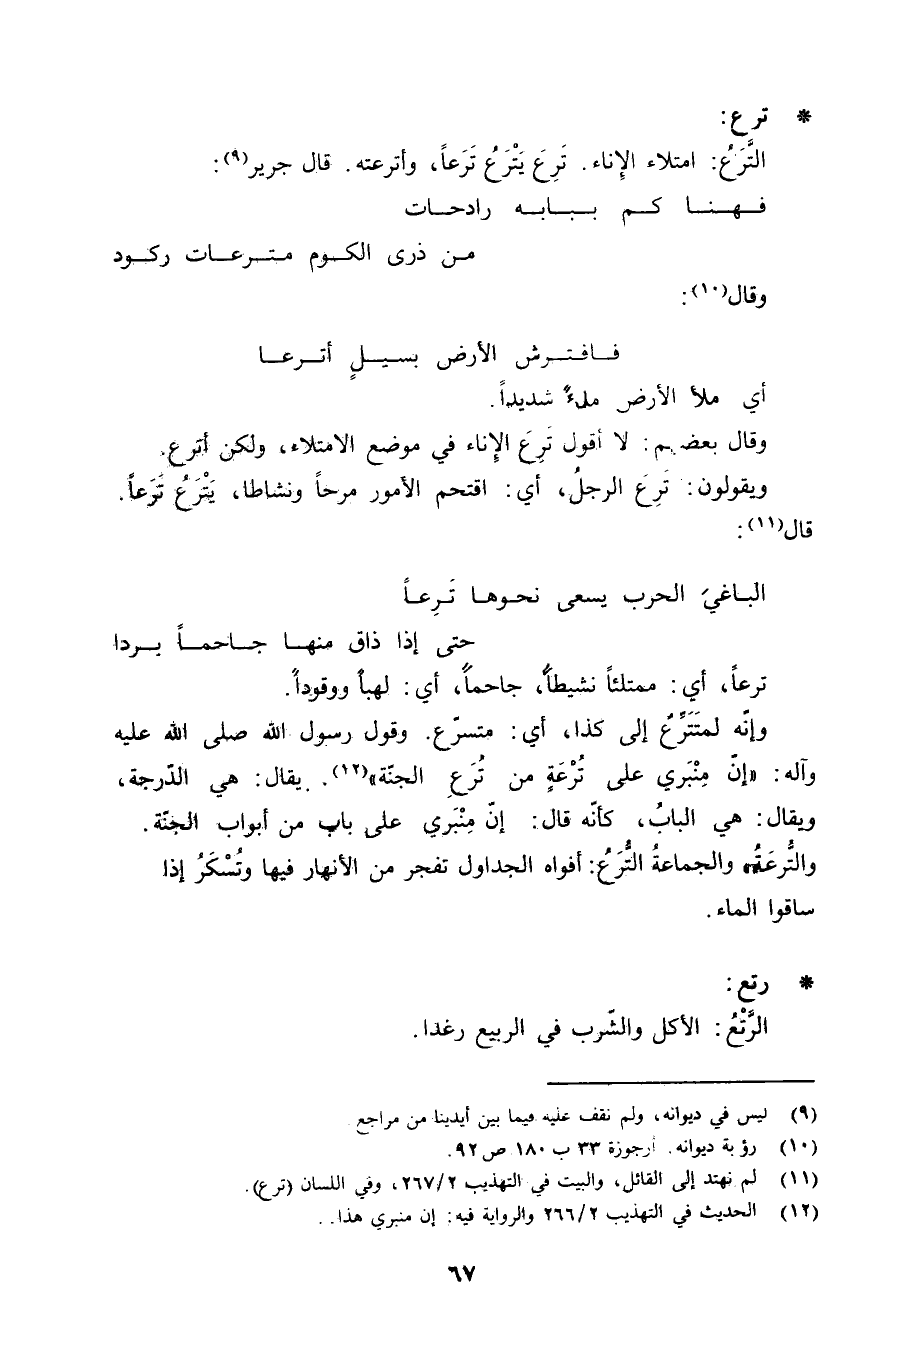 * ترع:
التَّرَعُ: امتلاء الإناء. تَرِعَ يَتْرَعُ تَرَعاً، وأترعته. قال جرير(٩):
فهنا كم ببابه رادحات
من ذرى الكوم مترعات ركود
وقال(١٠):
فافترش الأرض بسيلٍ أترعا
أي ملأ الأرض ملءً شديداً.
وقال بعضهم: لا أقول تَرِعَ الإناء في موضع الامتلاء، ولكن أترع.
ويقولون: تَرِعَ الرجلُ، أي: اقتحم الأمور مرحاً ونشاطا، يَتْرَعُ تَرَعاً.
قال(١١):
الباغيَ الحرب يسعى نحوها تَرِعاً
حتى إذا ذاق منها جاحماً بردا
ترعاً، أي: ممتلئاً نشيطاً، جاحماً، أي: لهباً ووقوداً.
وإنّه لمتَتَرِّعُ إلى كذا، أي: متسرّع. وقول رسول الله صلى الله عليه
وآله: «إنّ مِنْبَري على تُرْعَةٍ من تُرَعِ الجنّة»(١٢). يقال: هي الدّرجة،
ويقال: هي البابُ، كأنّه قال: إنّ مِنْبَري على باب من أبواب الجنّة.
والتُّرعَةُ والجماعةُ التُّرَعُ: أفواه الجداول تفجر من الأنهار فيها وتُسْكَرُ إذا
ساقوا الماء.
* رتع:
الرَّتْعُ: الأكل والشّرب في الربيع رغدا.
(٩) ليس في ديوانه، ولم نقف عليه فيما بين أيدينا من مراجع
(١٠) رؤبة ديوانه. أرجوزة ٣٣ ب ١٨٠ ص ٩٢.
(١١) لم نهتد إلى القائل، والبيت في التهذيب ٢٦٧/٢، وفي اللسان (ترع).
(١٢) الحديث في التهذيب ٢٦٦/٢ والرواية فيه: إن منبري هذا. .
٦٧